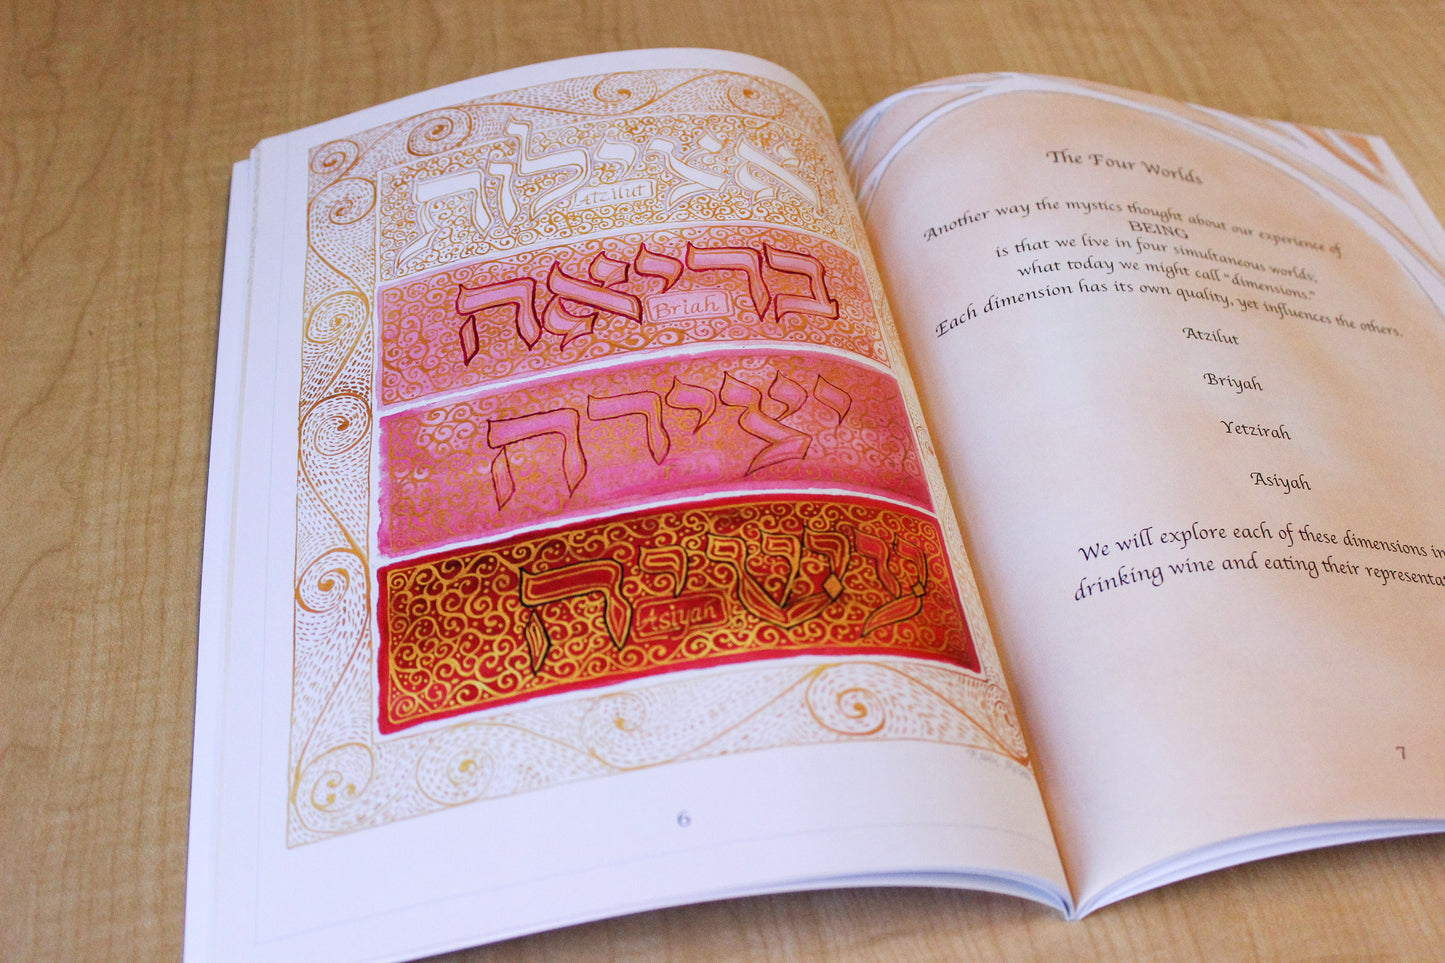 אצילות
Atzilut
בריאה
Briah
יצירה
עשייה
Asiyah
6
The Four Worlds
Another way the mystics thought about our experience of
BEING
is that we live in four simultaneous worlds,
what today we might call "dimensions."
Each dimension has its own quality, yet influences the others.
Atzilut
Briyah
Yetzirah
Asiyah
We will explore each of these dimensions in
drinking wine and eating their
7